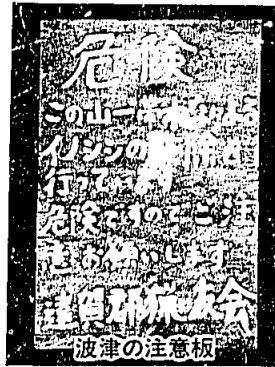 危険
この山一帯
イノシシの
行って
危険ですのでご注
をお願いします
遠賀郡猟友会
波津の注意板